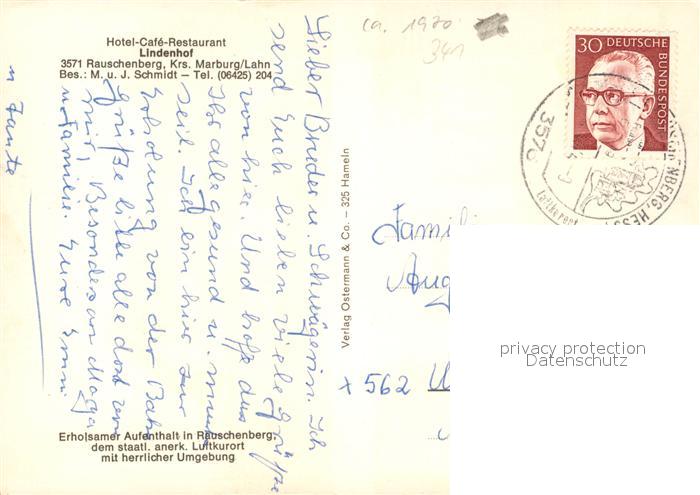 Hotel-Café-Restaurant
Lindenhof
3571 Rauschenberg, Krs. Marburg/Lahn
Bes.: M. u. J. Schmidt — Tel. (06425) 204
Lieber Bruder u. Schwägerin. Ich
send Euch lieben viele Grüße
von hier. Und hoffe das
Ihr alle gesund u. munter
seit. Ich ein hier zur
Erholung von der Bahn
Grüße bitte alle dort von
mir, Besonders an
u. Familie. Eure Emmi
u Tante
Erholsamer Aufenthalt in Rauschenberg,
dem staatl. anerk. Luftkurort
mit herrlicher Umgebung
Verlag Ostermann & Co. — 325 Hameln
ca. 1970
341
30 DEUTSCHE
BUNDESPOST
3576
RAUSCHENBERG, HESS
Luftkurort
Famil
Aug
x 562
privacy protection
Datenschutz